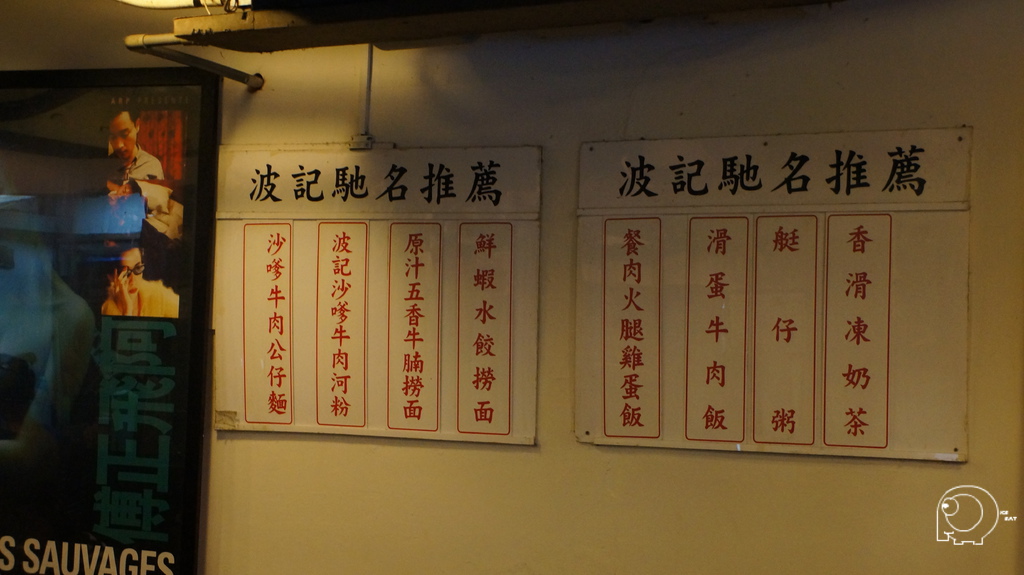 ARP PRESENTS
阿飛正傳
S SAUVAGES
波記馳名推薦
沙嗲牛肉公仔麵
波記沙嗲牛肉河粉
原汁五香牛腩撈面
鮮蝦水餃撈面
波記馳名推薦
餐肉火腿雞蛋飯
滑蛋牛肉飯
艇仔粥
香滑凍奶茶